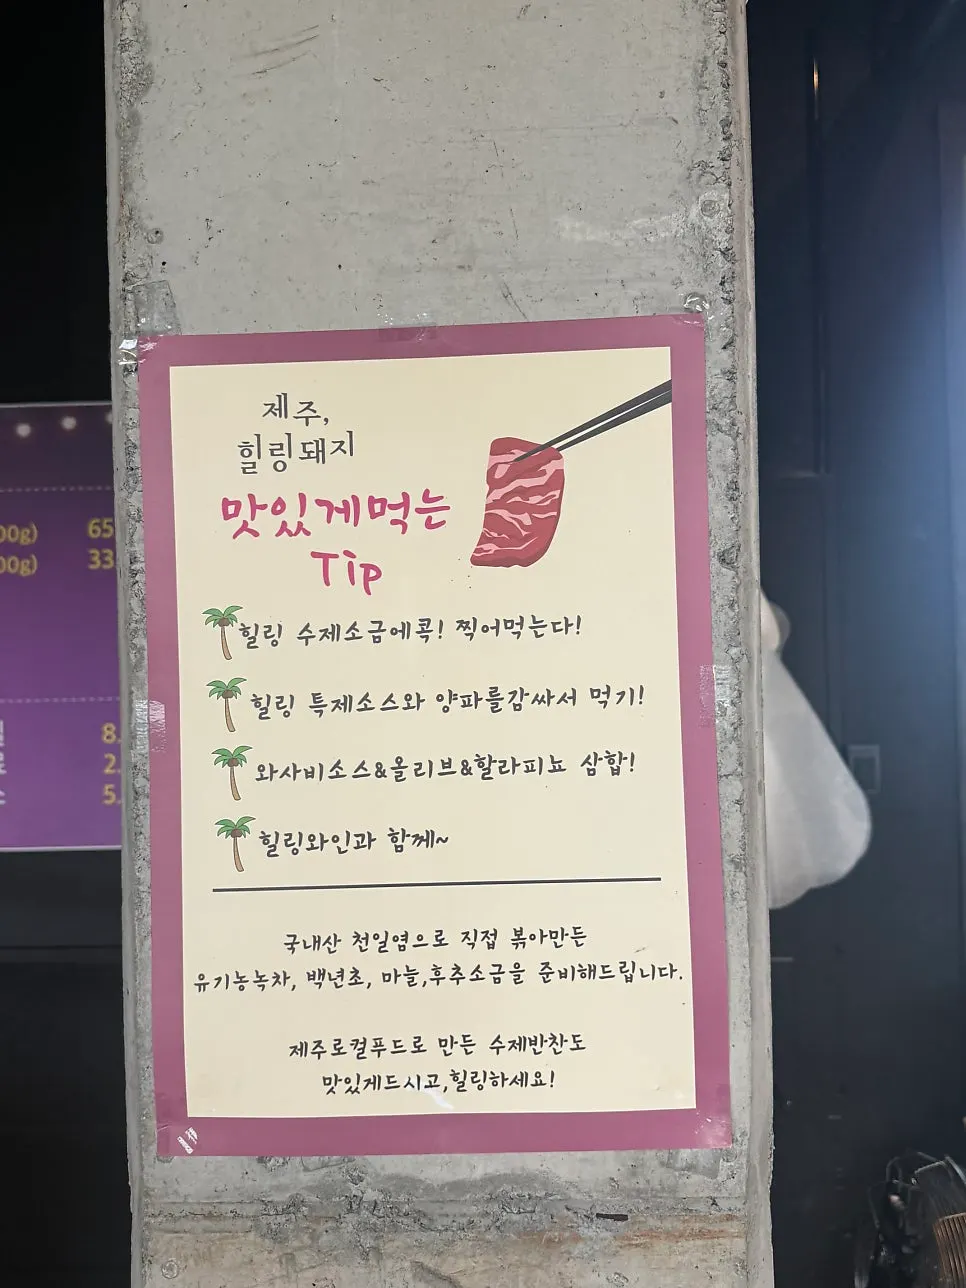 제주,
힐링돼지
맛있게먹는
Tip
힐링 수제소금에콕! 찍어먹는다!
힐링 특제소스와 양파를감싸서 먹기!
와사비소스&올리브&할라피뇨 삼합!
힐링와인과 함께~
국내산 천일염으로 직접 볶아만든
유기농녹차, 백년초, 마늘,후추소금을 준비해드립니다.
제주로컬푸드로 만든 수제반찬도
맛있게드시고,힐링하세요!
00g) 65
00g) 33
8.
2.
5.